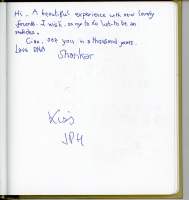 Hi. A beautiful experience with new lovely
friends. I wish to do but to be an
Ciao, see you in a thousand years.
Love DNA
Shankar
Kris
JP4